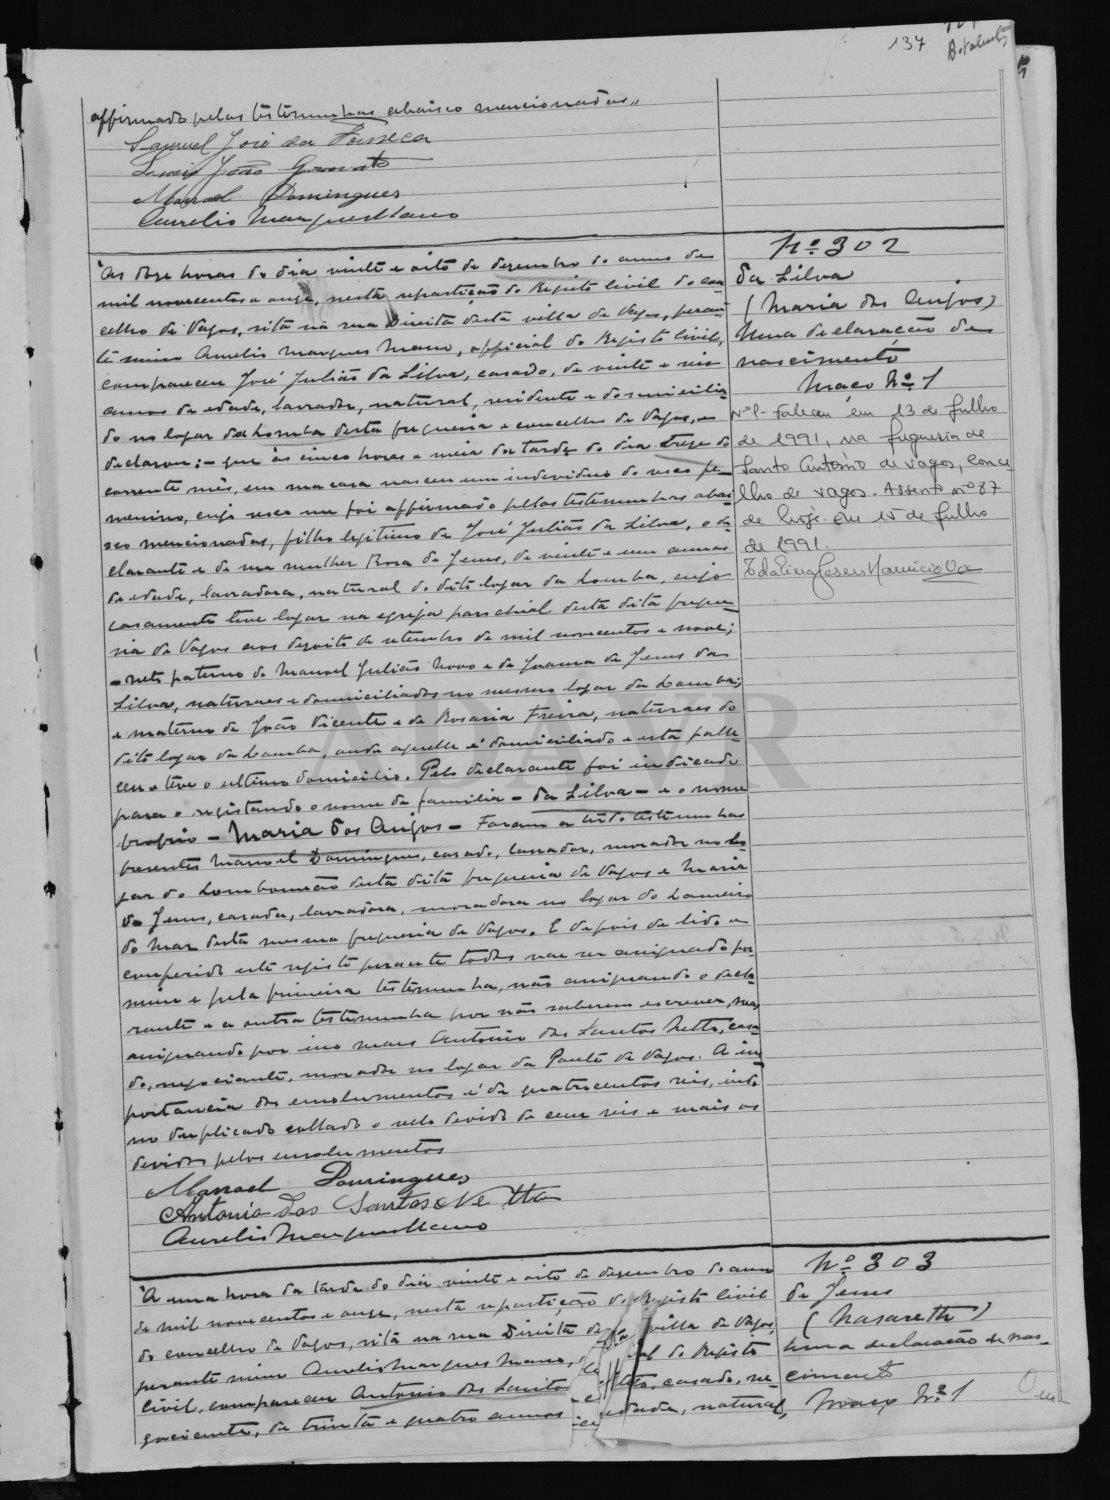 137
affirmado pelas testemunhas abaixo mencionadas,,
Samuel José da Fonseca
João Gravato
Manoel Domingues
Aurelio Marques Mano
Nº 302
da Silva
(Maria dos Anjos)
Uma declaração de
nascimento
Maço Nº 1
Nº1- Faleceu em 13 de Julho
de 1991, na freguesia de
Santo António de Vagos, conce
lho de Vagos. Assento nº 87
de hoje. Em 15 de Julho
de 1991.
Às doze horas do dia vinte e oito de dezembro do anno de
mil novecentos e onze, nesta repartição do Registo civil do con
celho de Vagos, sita na rua Direita desta villa de Vagos, peran
te mim Aurelio Marques Mano, official do Registo civil,
compareceu José Julião da Silva, casado, de vinte e seis
annos de edade, lavrador, natural, residente e domicilia
do no logar da Lomba desta freguesia e concelho de Vagos, e
declarou:- que às cinco horas e meia da tarde do dia treze do
corrente mês, em sua casa nasceu um individuo do sexo fe-
menino, cujo sexo me foi affirmado pelas testemunhas abai
xo mencionadas, filho legitimo de José Julião da Silva, o de
clarante e de sua mulher Rosa de Jesus, de vinte e um annos
de edade, lavradora, natural do dito logar da Lomba, cujo
casamento teve logar na egreja parochial desta dita fregue
sia de Vagos aos dezoito de setembro de mil novecentos e nove;
- neto paterno de Manoel Julião Novo e de Joanna de Jesus da
Silva, naturaes e domiciliados no mesmo logar da Lomba;
e materno de João Vicente e de Rosaria Freira, naturaes do
dito logar da Lomba, onde aquelle é domiciliado e esta falle-
ceu e teve o ultimo domicilio. Pelo declarante foi indicado
para o registando o nome de familia - da Silva - e o nome
proprio - Maria dos Anjos - Foram a tudo testemunhas
presentes Manoel Domingues, casado, lavrador, morador no lo
gar do Lombomeão desta dita freguesia de Vagos e Maria
de Jesus, casada, lavradora, moradora no logar do Lameiro
do Mar desta mesma freguesia de Vagos. E depois de lido e
conferido este registo perante todos vae ser assignado por
mim e pela primeira testemunha, não assignando o decla-
rante e a outra testemunha por não saberem escrever,
assignando por isso mais Antonio dos Santos Netto, casa
do, negociante, morador no logar da Ponte de Vagos. A im
portancia dos emolumentos é de quatrocentos reis, indo
no duplicado collado o sello devido de cem reis e mais os
devidos pelos emolumentos
Manoel Domingues
Antonio dos Santos Netto
Aurelio Marques Mano
Nº 303
de Jesus
(Nasareth)
Uma declaração de nas-
cimento
Maço Nº 1
À uma hora da tarde do dia vinte e oito de dezembro do anno
de mil novecentos e onze, nesta repartição do Registo civil
do concelho de Vagos, sita na rua Direita villa de Vagos,
perante mim Aurelio Marques Mano, do Registo
civil, compareceu Antonio dos Santos casado, ne-
gociante, de trinta e quatro annos edade, natural,